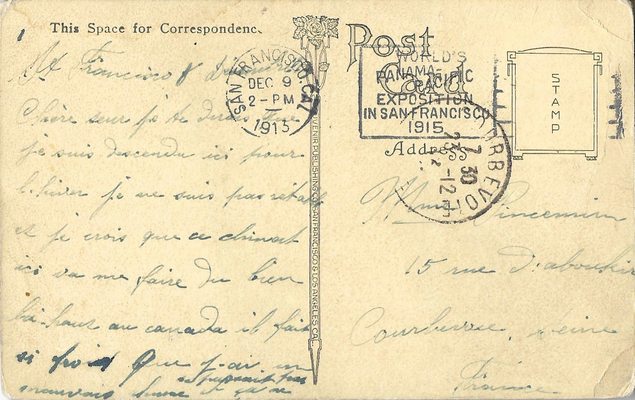 This Space for Correspondenc
Sn Francisco
Chère seur je te dirais que
je suis descendu ici pour
l'hiver je ne suis pas
et je crois que ce climat
ici va me faire du bien
la haut au canada il fait
si froid que j'ai un
mauvais
SAN FRANCISCO, CAL.
DEC 9
2-PM
1913
WORLD'S
PANAMA-PACIFIC
EXPOSITION
IN SAN FRANCISCO
1915
Post
Card
Address
STAMP
COURBEVOIE
7 30
23-12
Mme Pincemin
15 rue d'aboukir
Courbevoie, seine
France
SOUVENIR PUBLISHING CO. SAN FRANCISCO & LOS ANGELES CAL.